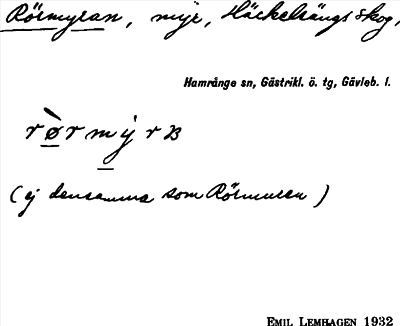 Rörmyran, myr, Häckelsängs skog,
Hamrånge sn, Gästrikl. ö. tg, Gävleb. l.
rø̀rmy̆rʙ
(ej densamma som Rörmuren)
EMIL LEMHAGEN 1932